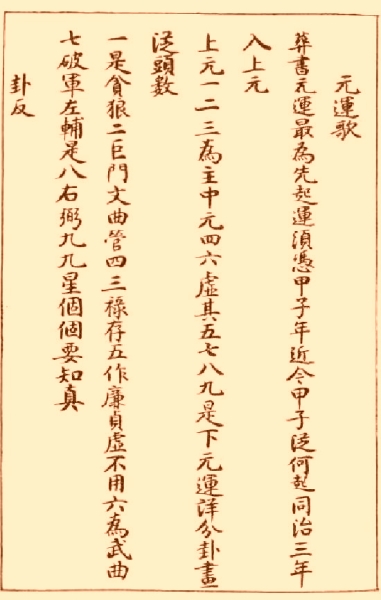 元運歌
葬書元運最為先起運須憑甲子年近今甲子從何起同治三年
入上元
上元一二三為主中元四六虛其五七八九是下元運詳分卦畫
從頭數
一是貪狼二巨門文曲管四三祿存五作廉貞虛不用六為武曲
七破軍左輔是八右弼九九星個個要知真
卦反